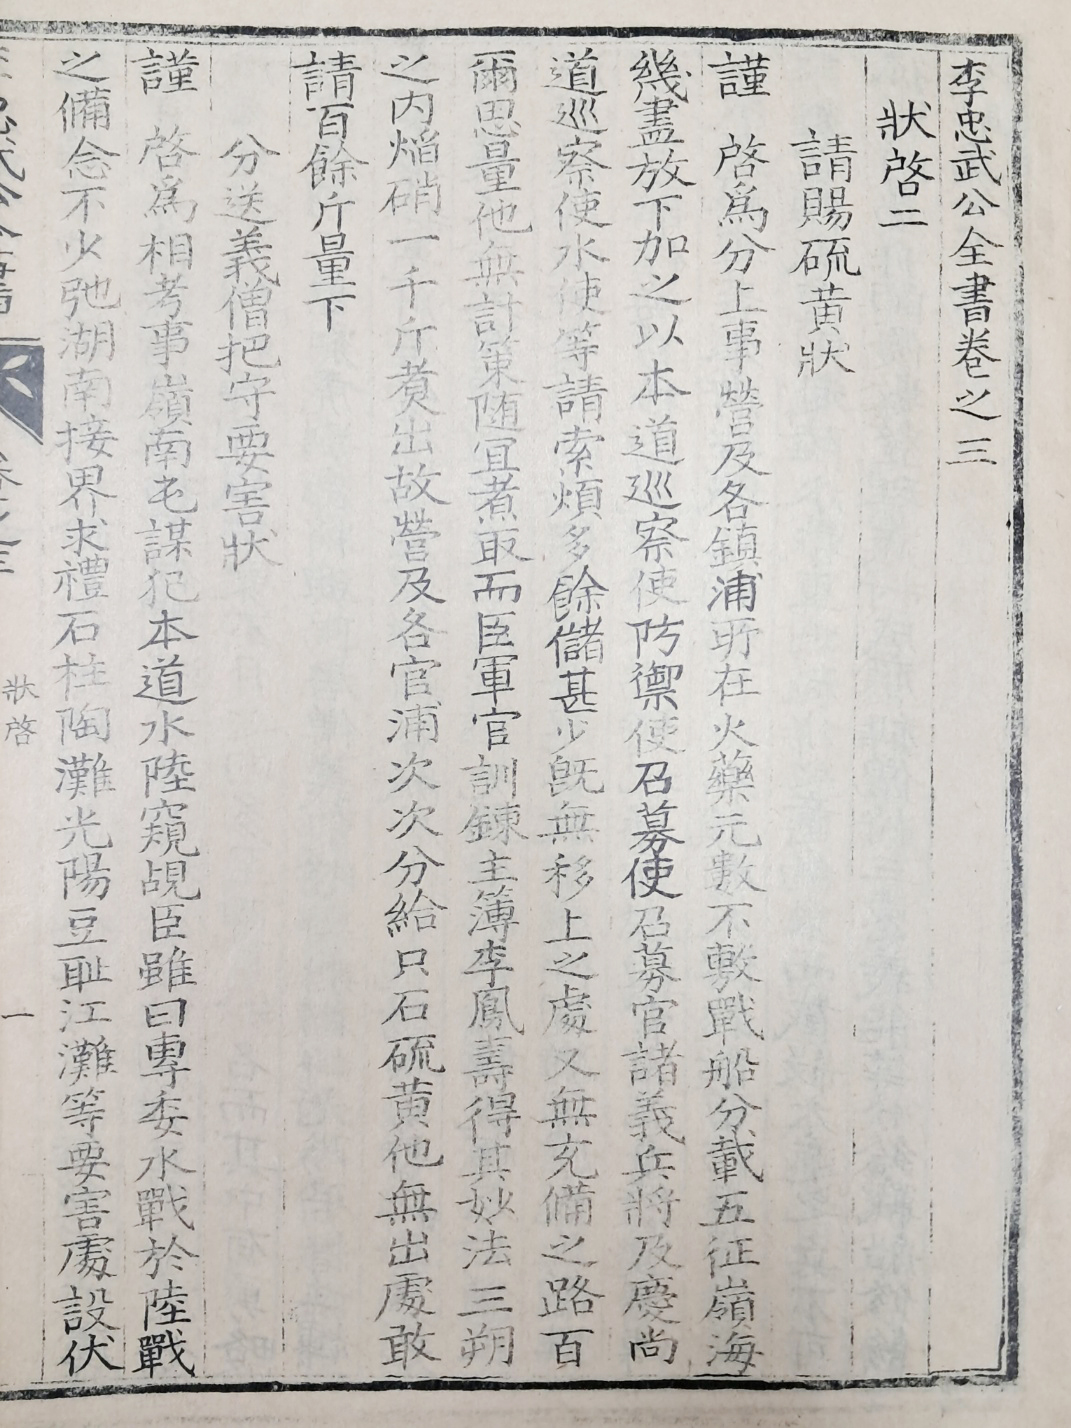 李忠武公全書卷之三
狀啓二
請賜硫黃狀
謹 啓爲分上事營及各鎮浦所在火藥元數不敷戰船分載五征嶺海
幾盡放下加之以本道巡察使防禦使召募使召募官諸義兵將及慶尚
道巡察使水使等請索煩多餘儲甚少旣無移上之處又無充備之路百
爾思量他無計策随宜煮取而臣軍官訓鍊主簿李鳳壽得其妙法三朔
之内焰硝一千斤煑出故營及各官浦次次分給只石硫黃他無出處敢
請百餘斤量下
分送義僧把守要害狀
謹 啓爲相考事嶺南屯謀犯本道水陸窺覘臣雖曰專委水戰於陸戰
之備念不少弛湖南接界求禮石柱陶灘光陽豆恥江灘等要害處設伏
狀啓
一